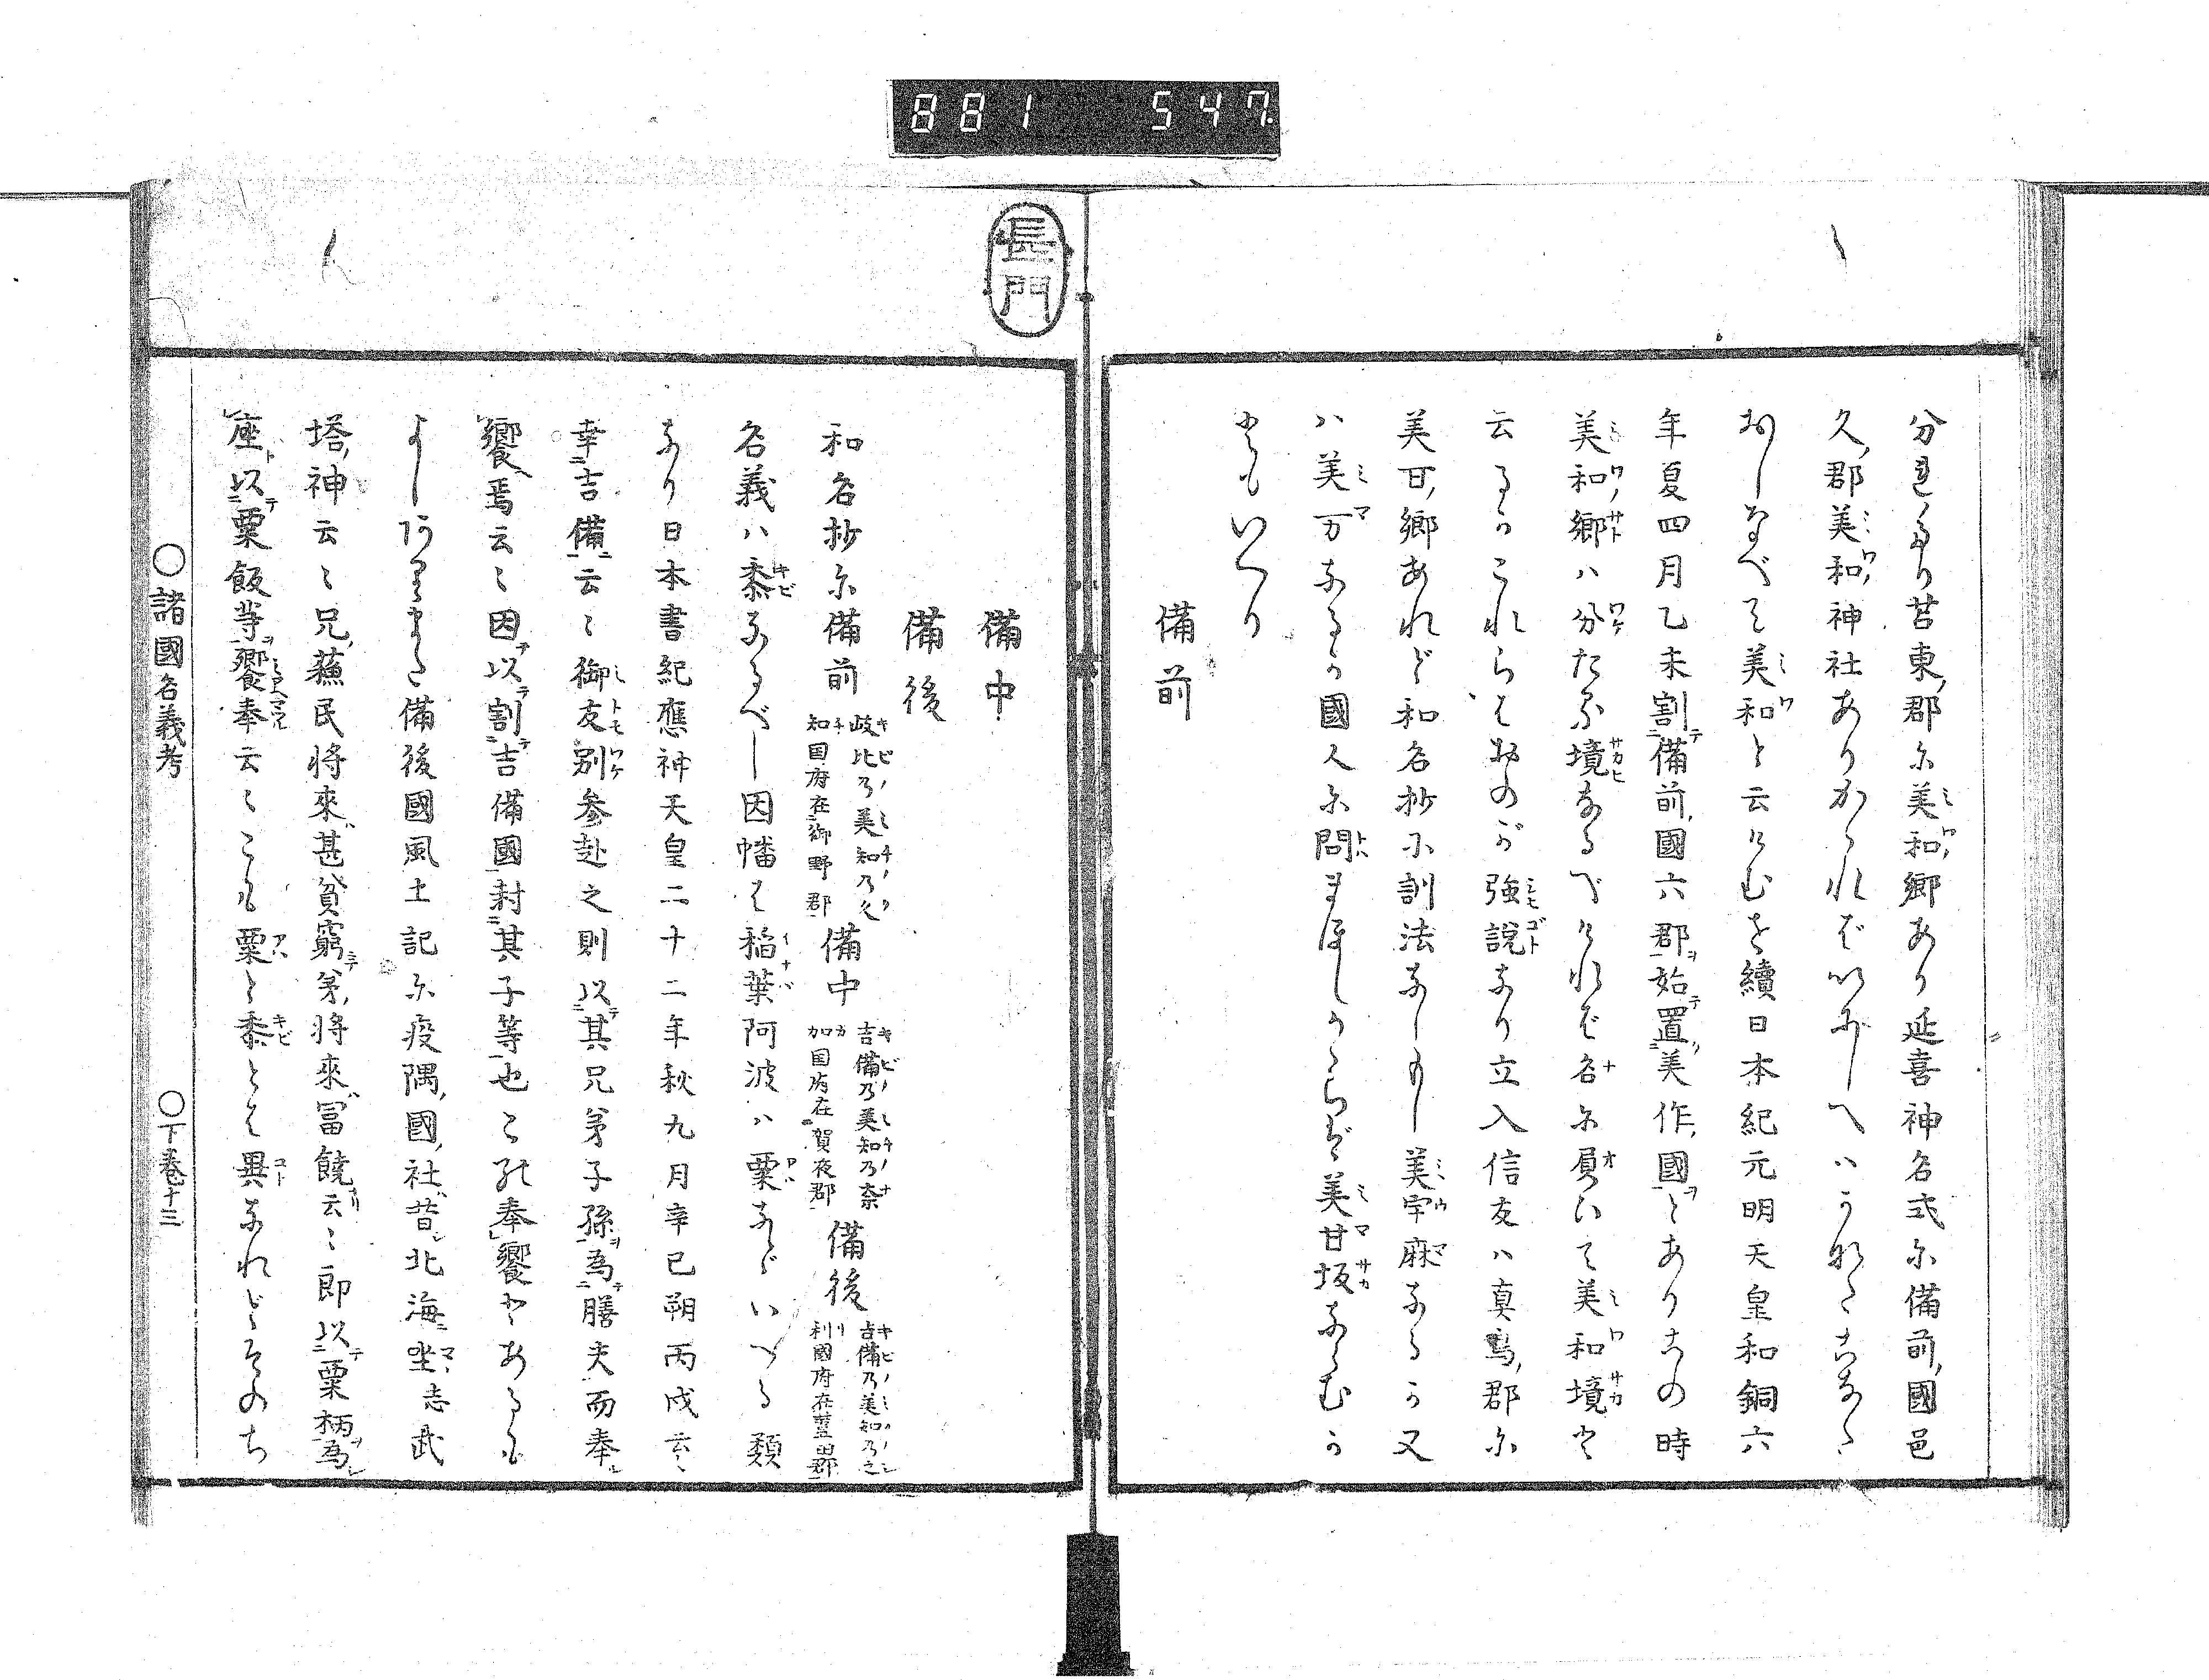 881 547.
分れたり苫東郡尓美和郷あり延喜神名式尓備前國邑
久郡美和神社ありかゝれバいにしへハうちこ
おしなべて美和と云けむを續日本紀元明天皇和銅六
年夏四月乙未割備前國六郡始置美作國とありこの時
美和郷ハ分たる境なるべけれバ名尓負いて美和境と
云るかこれらもおのが強説なり立入信友ハ真嶌郡尓
美甘郷あれど和名抄尓訓法なしもし美宇麻なるか又
ハ美万なるか國人尓問まほしかゝらバ美甘坂ならむか
ともいへり
備前
長門
備中
備後
和名抄尓備前 岐比乃美知乃久知国府在御野郡 備中 吉備乃美知乃奈加国府在賀夜郡 備後 吉備乃美知乃之利國府在葦田郡
名義ハ黍なるべし因幡を稲葉阿波ハ粟などいへる類
なり日本書紀應神天皇二十二年秋九月辛巳朔丙戌云々
幸吉備云々御友別参赴之則以其兄弟子孫為膳夫而奉
饗焉云々因以割吉備國封其子等也この奉饗とあるも
よしありまた備後國風土記尓疫隅國社昔北海坐志武
塔神云々兄蘓民将來甚貧窮弟将來冨饒云々即以粟柄為
座以粟飯等饗奉云々これも粟と黍とは異なれどそのち
○諸國名義考 ○下巻十三